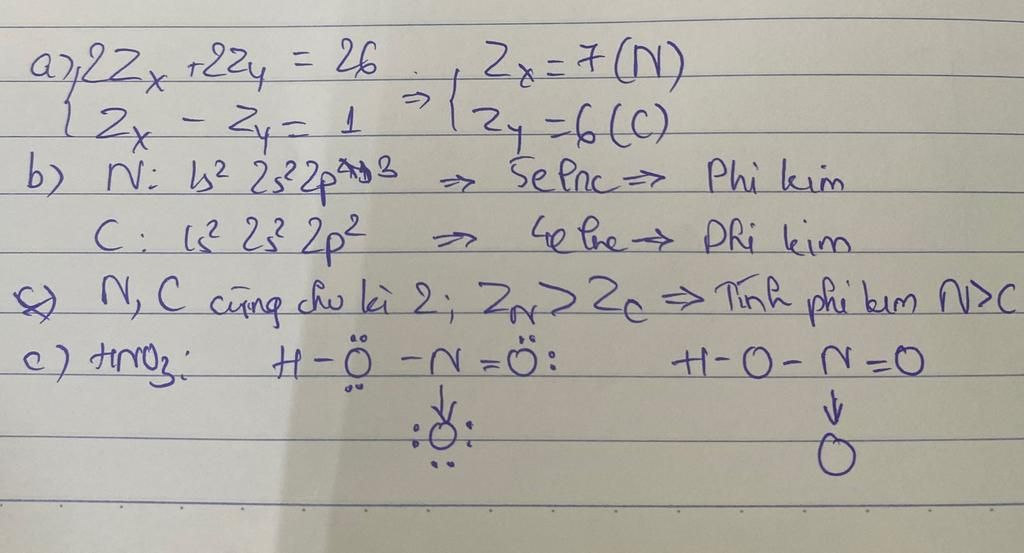 a) 2Zx + 2Zy = 26 ⇒ Zx = 7 (N)
Zx - Zy = 1 Zy = 6 (C)
b) N: 1s² 2s² 2p³ ⇒ 5e lnc ⇒ Phi kim
C: 1s² 2s² 2p² ⇒ 4e lnc → Phi kim
N, C cùng chu kì 2; ZN > ZC ⇒ Tính phi kim N>C
c) HNO3: H-O-N=O: H-O-N=O
↓ ↓
:O: O